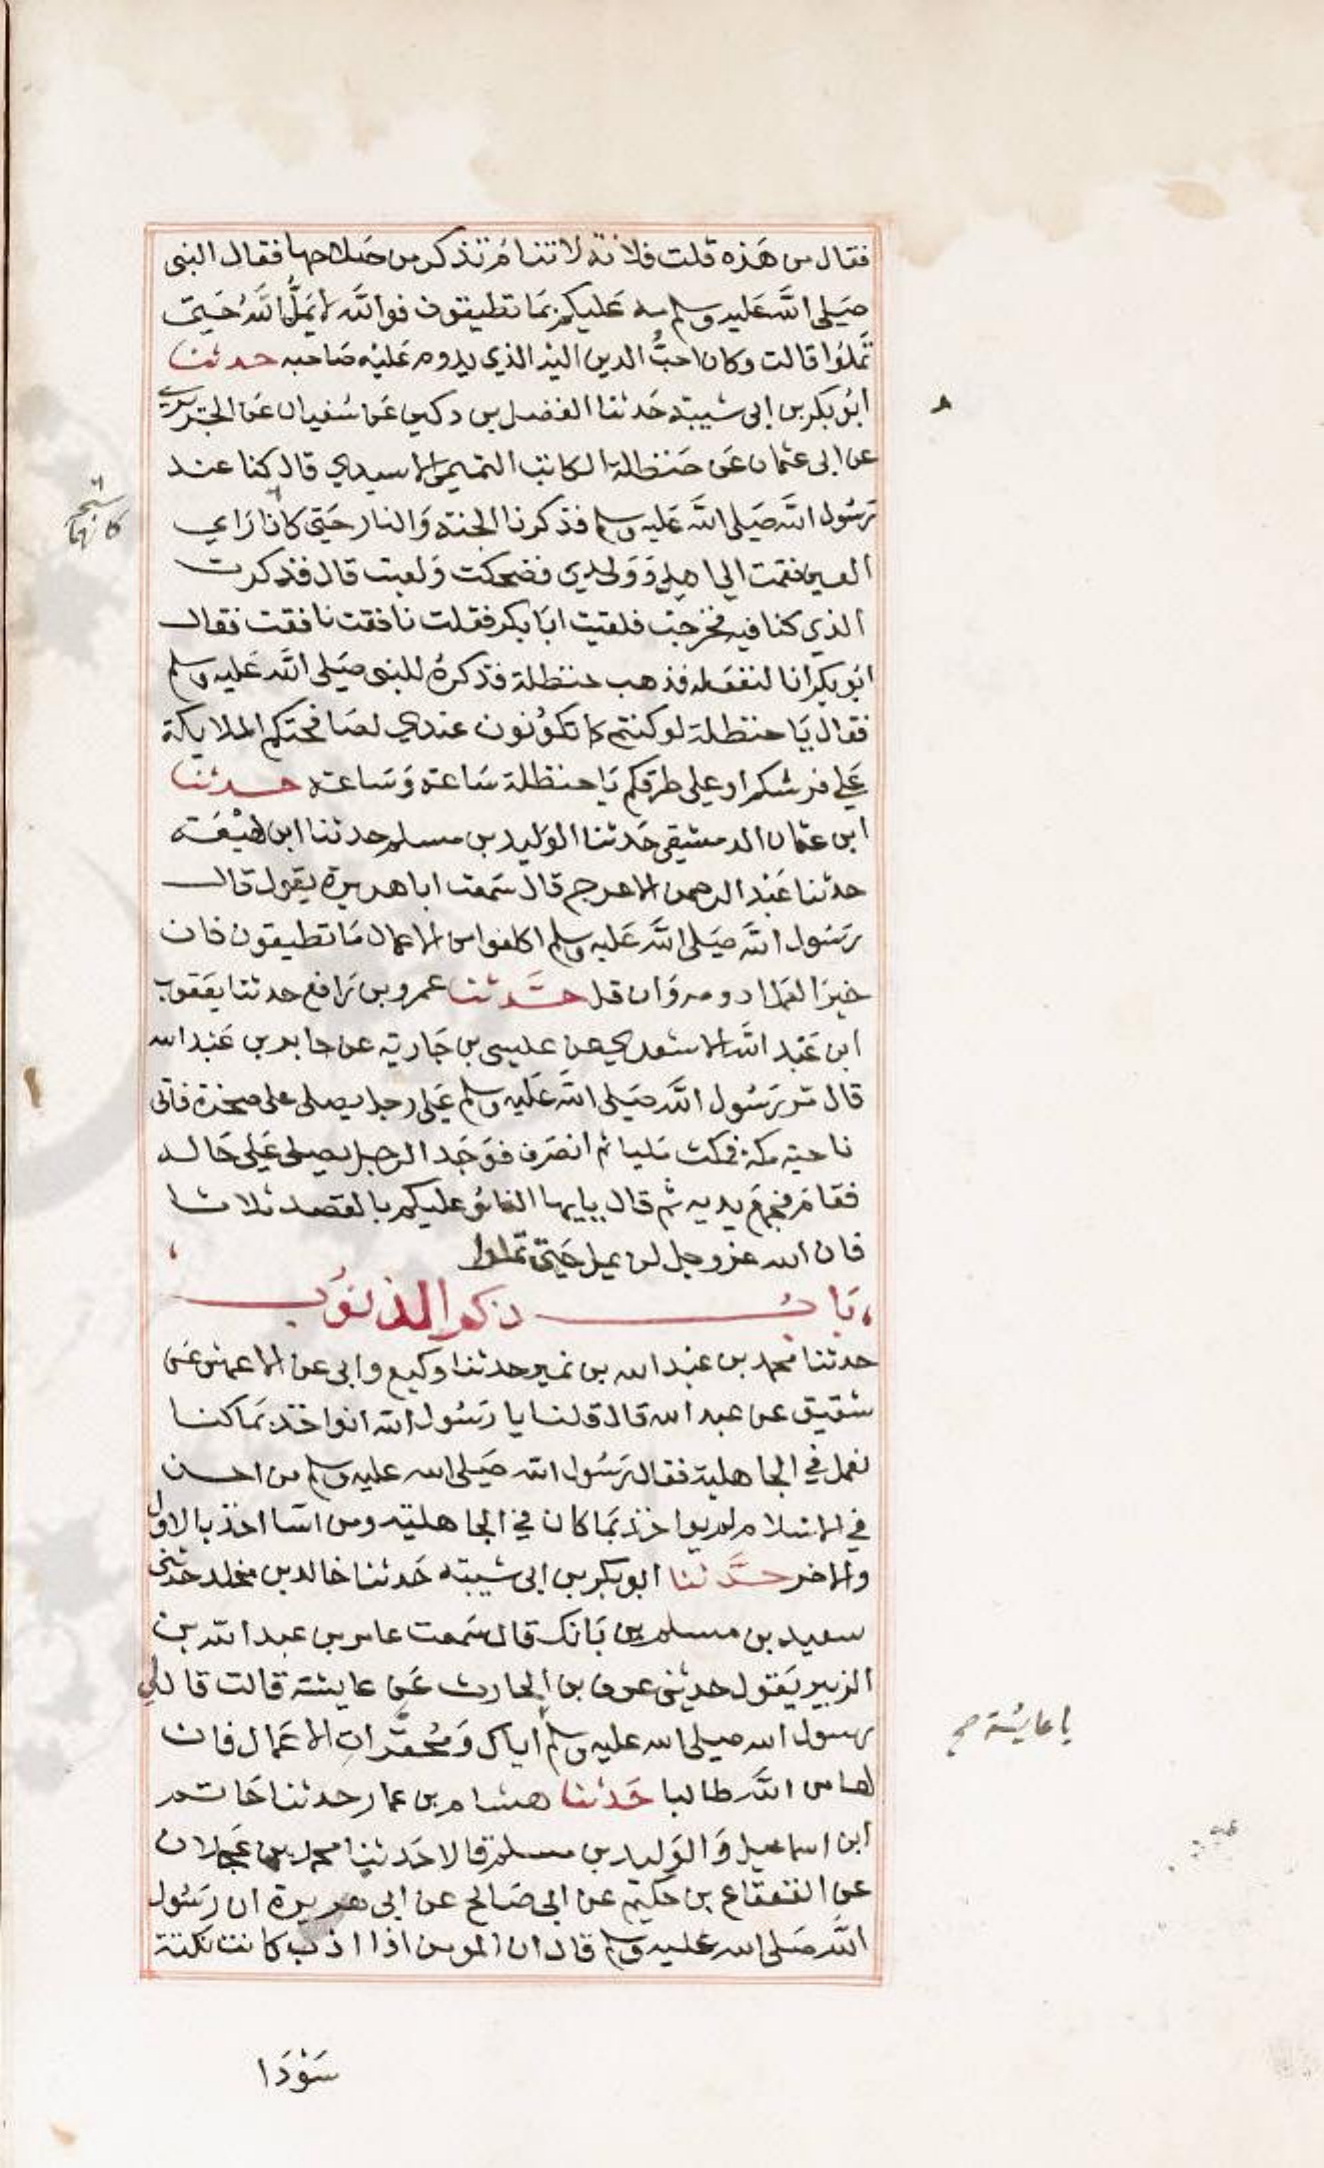 فقال من هذه قلت فلانة لا تنام تذكر من صلاتها فقال النبي
صلى الله عليه وسلم مه عليكم بما تطيقون فوالله لا يمل الله حتى
تملوا قالت وكان احب الدين اليه الذي يدوم عليه صاحبه حدثنا
ابو بكر بن ابي شيبة حدثنا الفضل بن دكين عن سفيان عن الجريري
عن ابي عثمان عن حنظلة الكاتب التميمي الاسيدي قال كنا عند
رسول الله صلى الله عليه وسلم فذكرنا الجنة والنار حتى كانا راي
العين فقمت الى اهلي وولدي فضحكت ولعبت قال فذكرت
الذي كنا فيه فخرجت فلقيت ابا بكر فقلت نافقت نافقت فقال
ابو بكر انا لنفعله فذهب حنظلة فذكره للنبي صلى الله عليه وسلم
فقال يا حنظلة لو كنتم كما تكونون عندي لصافحتكم الملايكة
على فرشكم او على طرقكم يا حنظلة ساعة وساعة حدثنا
ابن عثمان الدمشقي حدثنا الوليد بن مسلم حدثنا ابن لهيعة
حدثنا عبد الرحمن الاعرج قال سمعت ابا هريرة يقول قال
رسول الله صلى الله عليه وسلم اكلفوا من الاعمال ما تطيقون فان
خير العمل ادومه وان قل حدثنا عمرو بن رافع حدثنا يعقوب
ابن عبد الله الاشعري عن عيسى بن جارية عن جابر بن عبد الله
قال مر رسول الله صلى الله عليه وسلم على رجل يصلي على صخرة فاتى
ناحية مكة فمكث مليا ثم انصرف فوجد الرجل يصلي على حاله
فقام فجمع يديه ثم قال يايها الناس عليكم بالقصد ثلاثا
فان الله عز وجل لن يمل حتى تملوا
باب ذكر الذنوب
حدثنا محمد بن عبد الله بن نمير حدثنا وكيع وابي عن الاعمش عن
شقيق عن عبد الله قال قلنا يا رسول الله انواخذ بما كنا
نعمل في الجاهلية فقال رسول الله صلى الله عليه وسلم من احسن
في الاسلام لم يواخذ بما كان في الجاهلية ومن اسا اخذ بالاول
والاخر حدثنا ابو بكر بن ابي شيبة حدثنا خالد بن مخلد حدثني
سعيد بن مسلم بن بانك قال سمعت عامر بن عبد الله بن
الزبير يقول حدثني عوف بن الحارث عن عايشة قالت قال لي
رسول الله صلى الله عليه وسلم اياك ومحقرات الاعمال فان
لها من الله طالبا حدثنا هشام بن عمار حدثنا حاتم
ابن اسماعيل والوليد بن مسلم قالا حدثنا محمد بن عجلان
عن القعقاع بن حكيم عن ابي صالح عن ابي هريرة ان رسول
الله صلى الله عليه وسلم قال ان المومن اذا اذنب كانت نكتة
سودا
كانهما
يا عايشة صح